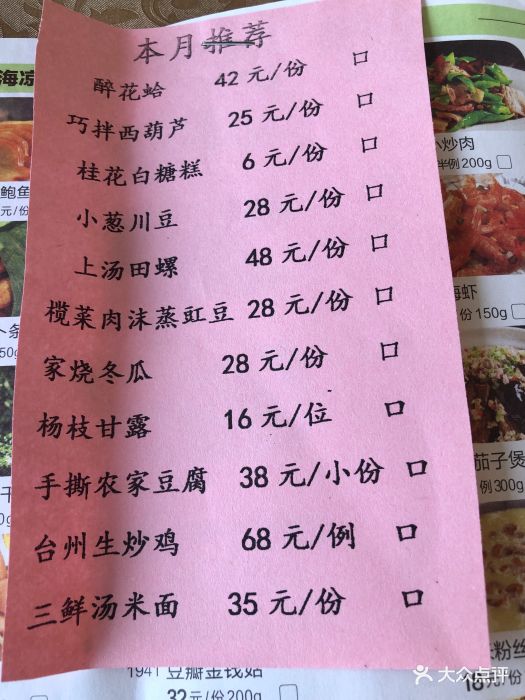 本月推荐
醉花蛤 42元/份 口
巧拌西葫芦 25元/份 口
桂花白糖糕 6元/份 口
小葱川豆 28元/份 口
上汤田螺 48元/份 口
榄菜肉沫蒸豇豆 28元/份 口
家烧冬瓜 28元/份 口
杨枝甘露 16元/位 口
手撕农家豆腐 38元/小份 口
台州生炒鸡 68元/例 口
三鲜汤米面 35元/份 口
海凉
鲍鱼
元/份
条
50g
干
小炒肉
半例 200g
虾
份 150g
茄子煲
例 300g
粉丝
18元/份
1941 豆瓣金钱菇
32元/份 200g
大众点评